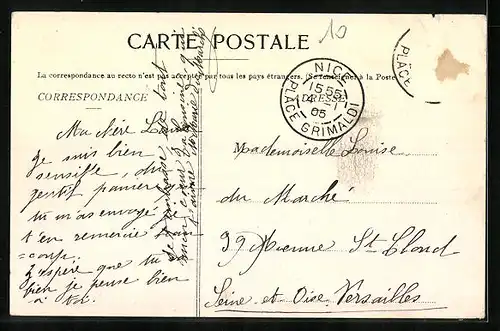 10
CARTE POSTALE
La correspondance au recto n'est pas acceptée par tous les pays étrangers. (Se renseigner à la Poste)
CORRESPONDANCE
ADRESSE
NICE
15 55
4 - 1
05
PLACE GRIMALDI
PLACE
Ma chère Louise
Je suis bien
sensible, du
gentil panier
tu m'as envoyé
t'en remercie
=coup.
J'espère que tu
bien je pense bien
à toi
Mademoiselle Louise
du Marché
39 Avenue St Cloud
Seine et Oise Versailles